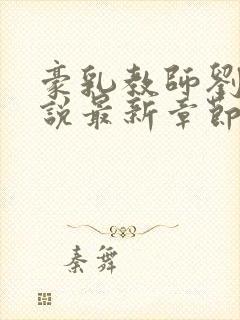 豪乳教師劉
說最新章節
秦舞